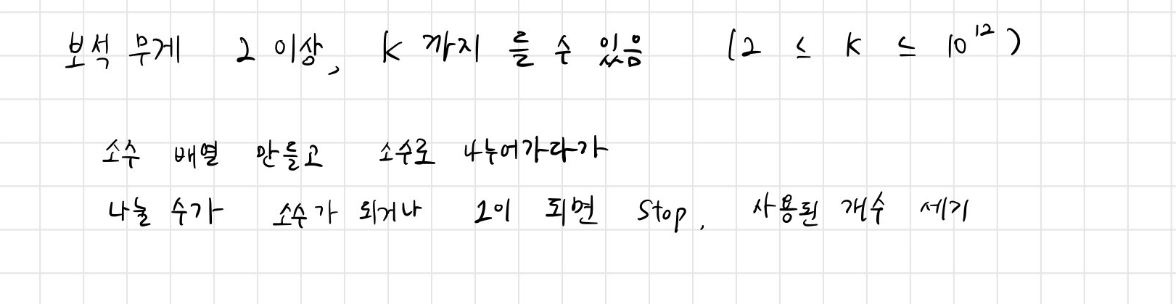 보석 무게 2 이상, K 까지 들 수 있음 (2 ≤ K ≤ 10¹²)
소수 배열 만들고 소수로 나누어가다가
나눌 수가 소수가 되거나 1이 되면 stop, 사용된 개수 세기